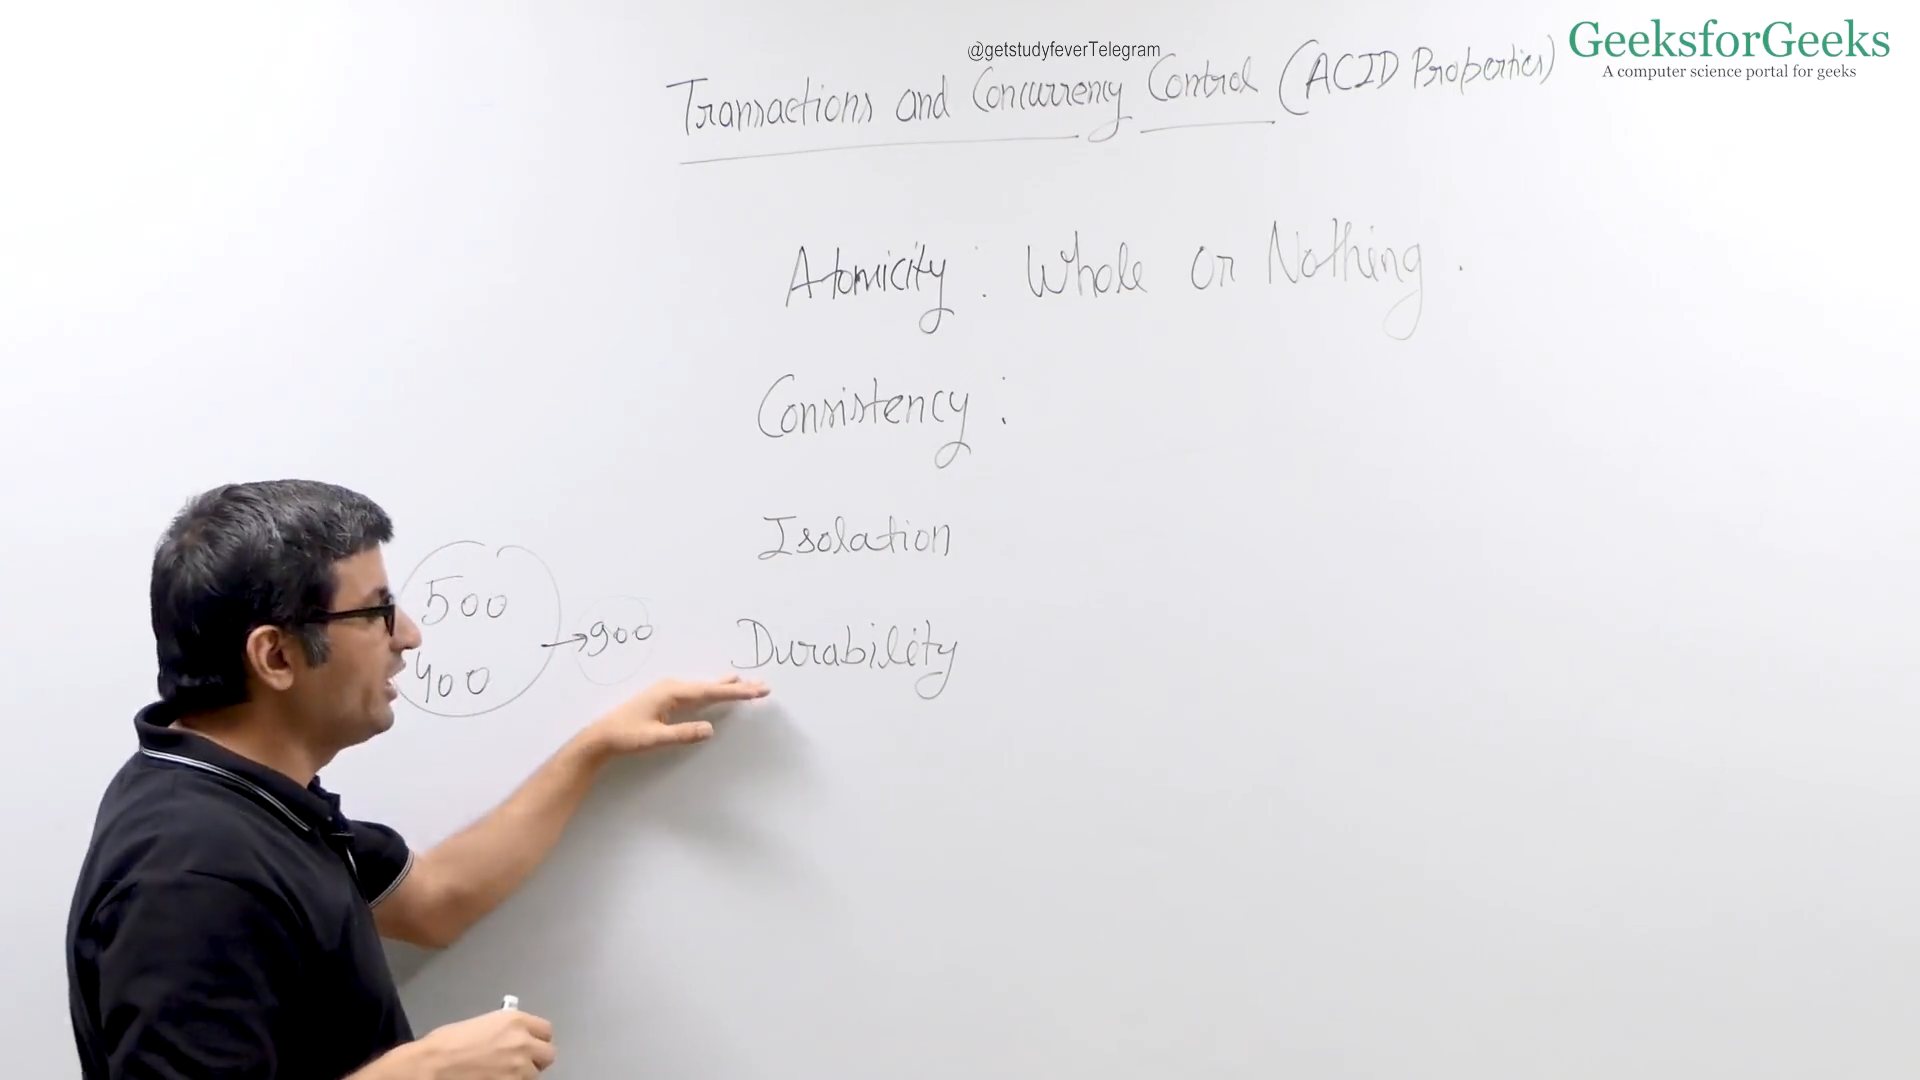 @getstudyfeverTelegram
GeeksforGeeks
A computer science portal for geeks
Transactions and Concurrency Control (ACID Properties)
Atomicity : Whole or Nothing .
Consistency :
Isolation
Durability
500
400
→900